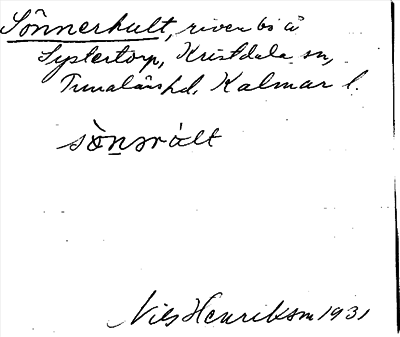 Sönnerhult, riven bs å
Systertorp, Kristdala sn,
Tunalänshd. Kalmar l.
sò̀nəràlt
Nils Henriksson 1931